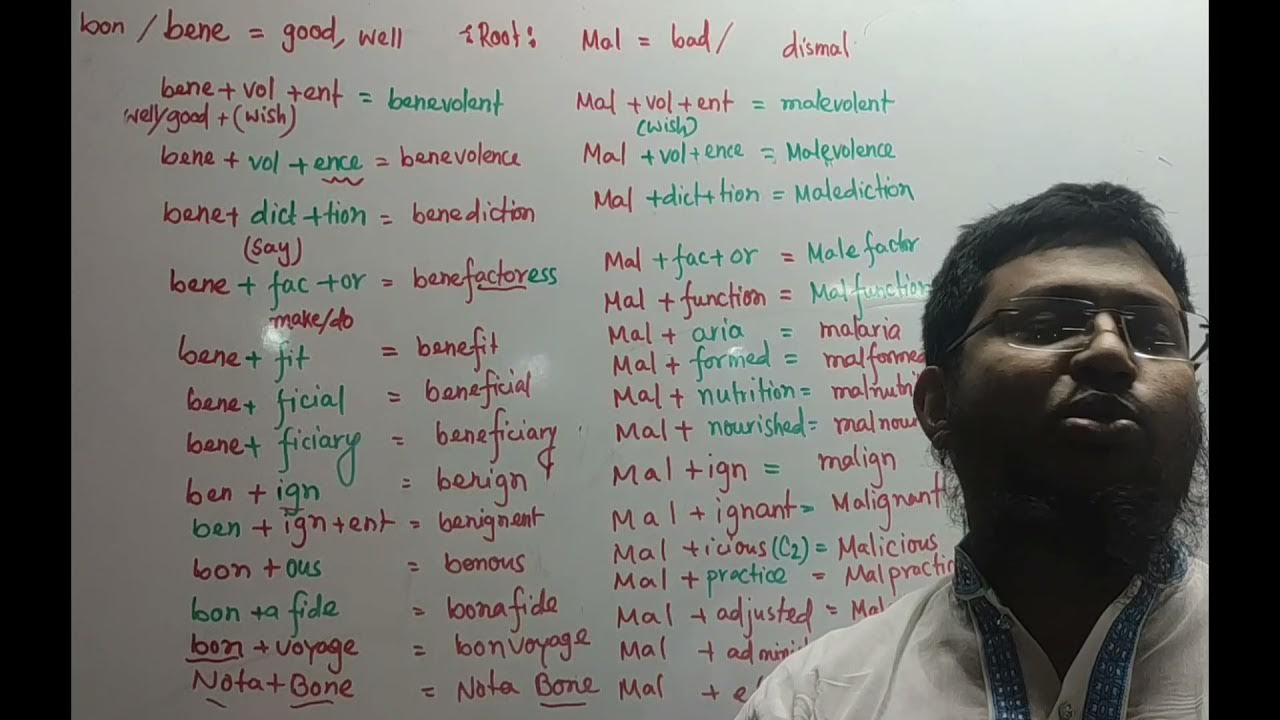 bon / bene = good, well
bene + vol + ent = benevolent
well/good + (wish)
bene + vol + ence = benevolence
bene + dict + tion = benediction
(say)
bene + fac + or = benefactoress
make/do
bene + fit = benefit
bene + ficial = beneficial
bene + ficiary = beneficiary
ben + ign = benign
ben + ign + ent = benignent
bon + ous = bonous
bon + a fide = bonafide
bon + voyage = bonvoyage
Nota + Bone = Nota Bone
Root: Mal = bad / dismal
Mal + vol + ent = malevolent
(wish)
Mal + vol + ence = Malevolence
Mal + dict + tion = Malediction
Mal + fac + or = Malefactor
Mal + function = Malfunction
Mal + aria = malaria
Mal + formed = malformed
Mal + nutrition = malnutri
Mal + nourished = malnou
Mal + ign = malign
Mal + ignant = Malignant
Mal + icious (C2) = Malicious
Mal + practice = Malpractic
Mal + adjusted = Mal
Mal + admini
Mal +